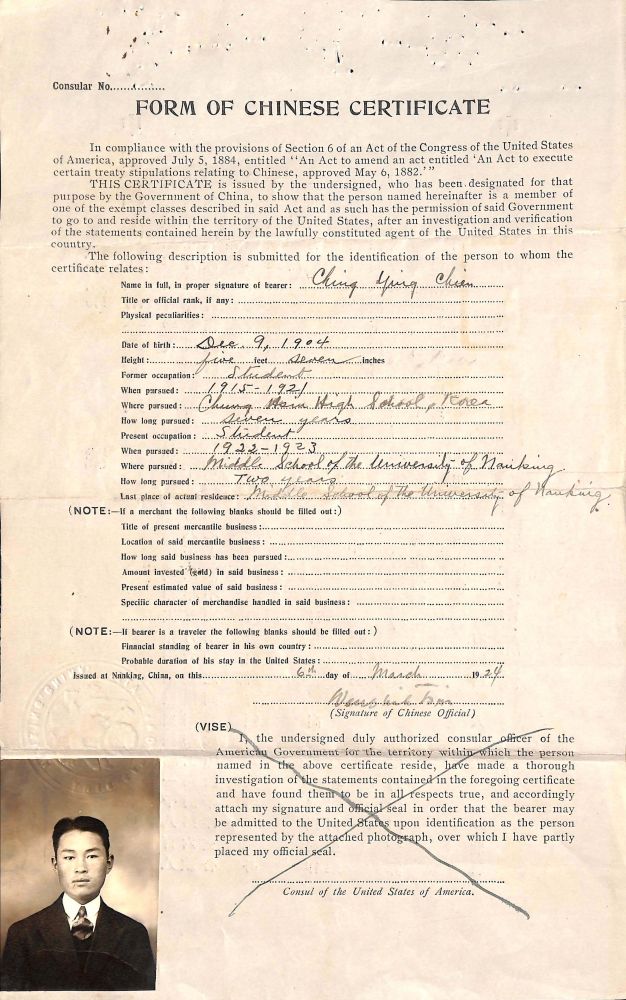 Consular No.
FORM OF CHINESE CERTIFICATE
In compliance with the provisions of Section 6 of an Act of the Congress of the United States
of America, approved July 5, 1884, entitled "An Act to amend an act entitled 'An Act to execute
certain treaty stipulations relating to Chinese, approved May 6, 1882.'"
THIS CERTIFICATE is issued by the undersigned, who has been designated for that
purpose by the Government of China, to show that the person named hereinafter is a member of
one of the exempt classes described in said Act and as such has the permission of said Government
to go to and reside within the territory of the United States, after an investigation and verification
of the statements contained herein by the lawfully constituted agent of the United States in this
country.
The following description is submitted for the identification of the person to whom the
certificate relates:
Name in full, in proper signature of bearer: Ching Ying Chien
Title or official rank, if any:
Physical peculiarities:
Date of birth: Dec. 9, 1904
Height: five feet seven inches
Former occupation: Student
When pursued: 1915-1921
Where pursued: Chung Hsin High School, Korea
How long pursued: seven years
Present occupation: Student
When pursued: 1922-1923
Where pursued: Middle School of the University of Nanking
How long pursued: Two years
Last place of actual residence: Middle School of the University of Nanking.
(NOTE:—If a merchant the following blanks should be filled out:)
Title of present mercantile business:
Location of said mercantile business:
How long said business has been pursued:
Amount invested (gold) in said business:
Present estimated value of said business:
Specific character of merchandise handled in said business:
(NOTE:—If bearer is a traveler the following blanks should be filled out:)
Financial standing of bearer in his own country:
Probable duration of his stay in the United States:
Issued at Nanking, China, on this 6th day of March 1924
(Signature of Chinese Official)
(VISE)
I, the undersigned duly authorized consular officer of the
American Government for the territory within which the person
named in the above certificate reside, have made a thorough
investigation of the statements contained in the foregoing certificate
and have found them to be in all respects true, and accordingly
attach my signature and official seal in order that the bearer may
be admitted to the United States upon identification as the person
represented by the attached photograph, over which I have partly
placed my official seal.
Consul of the United States of America.